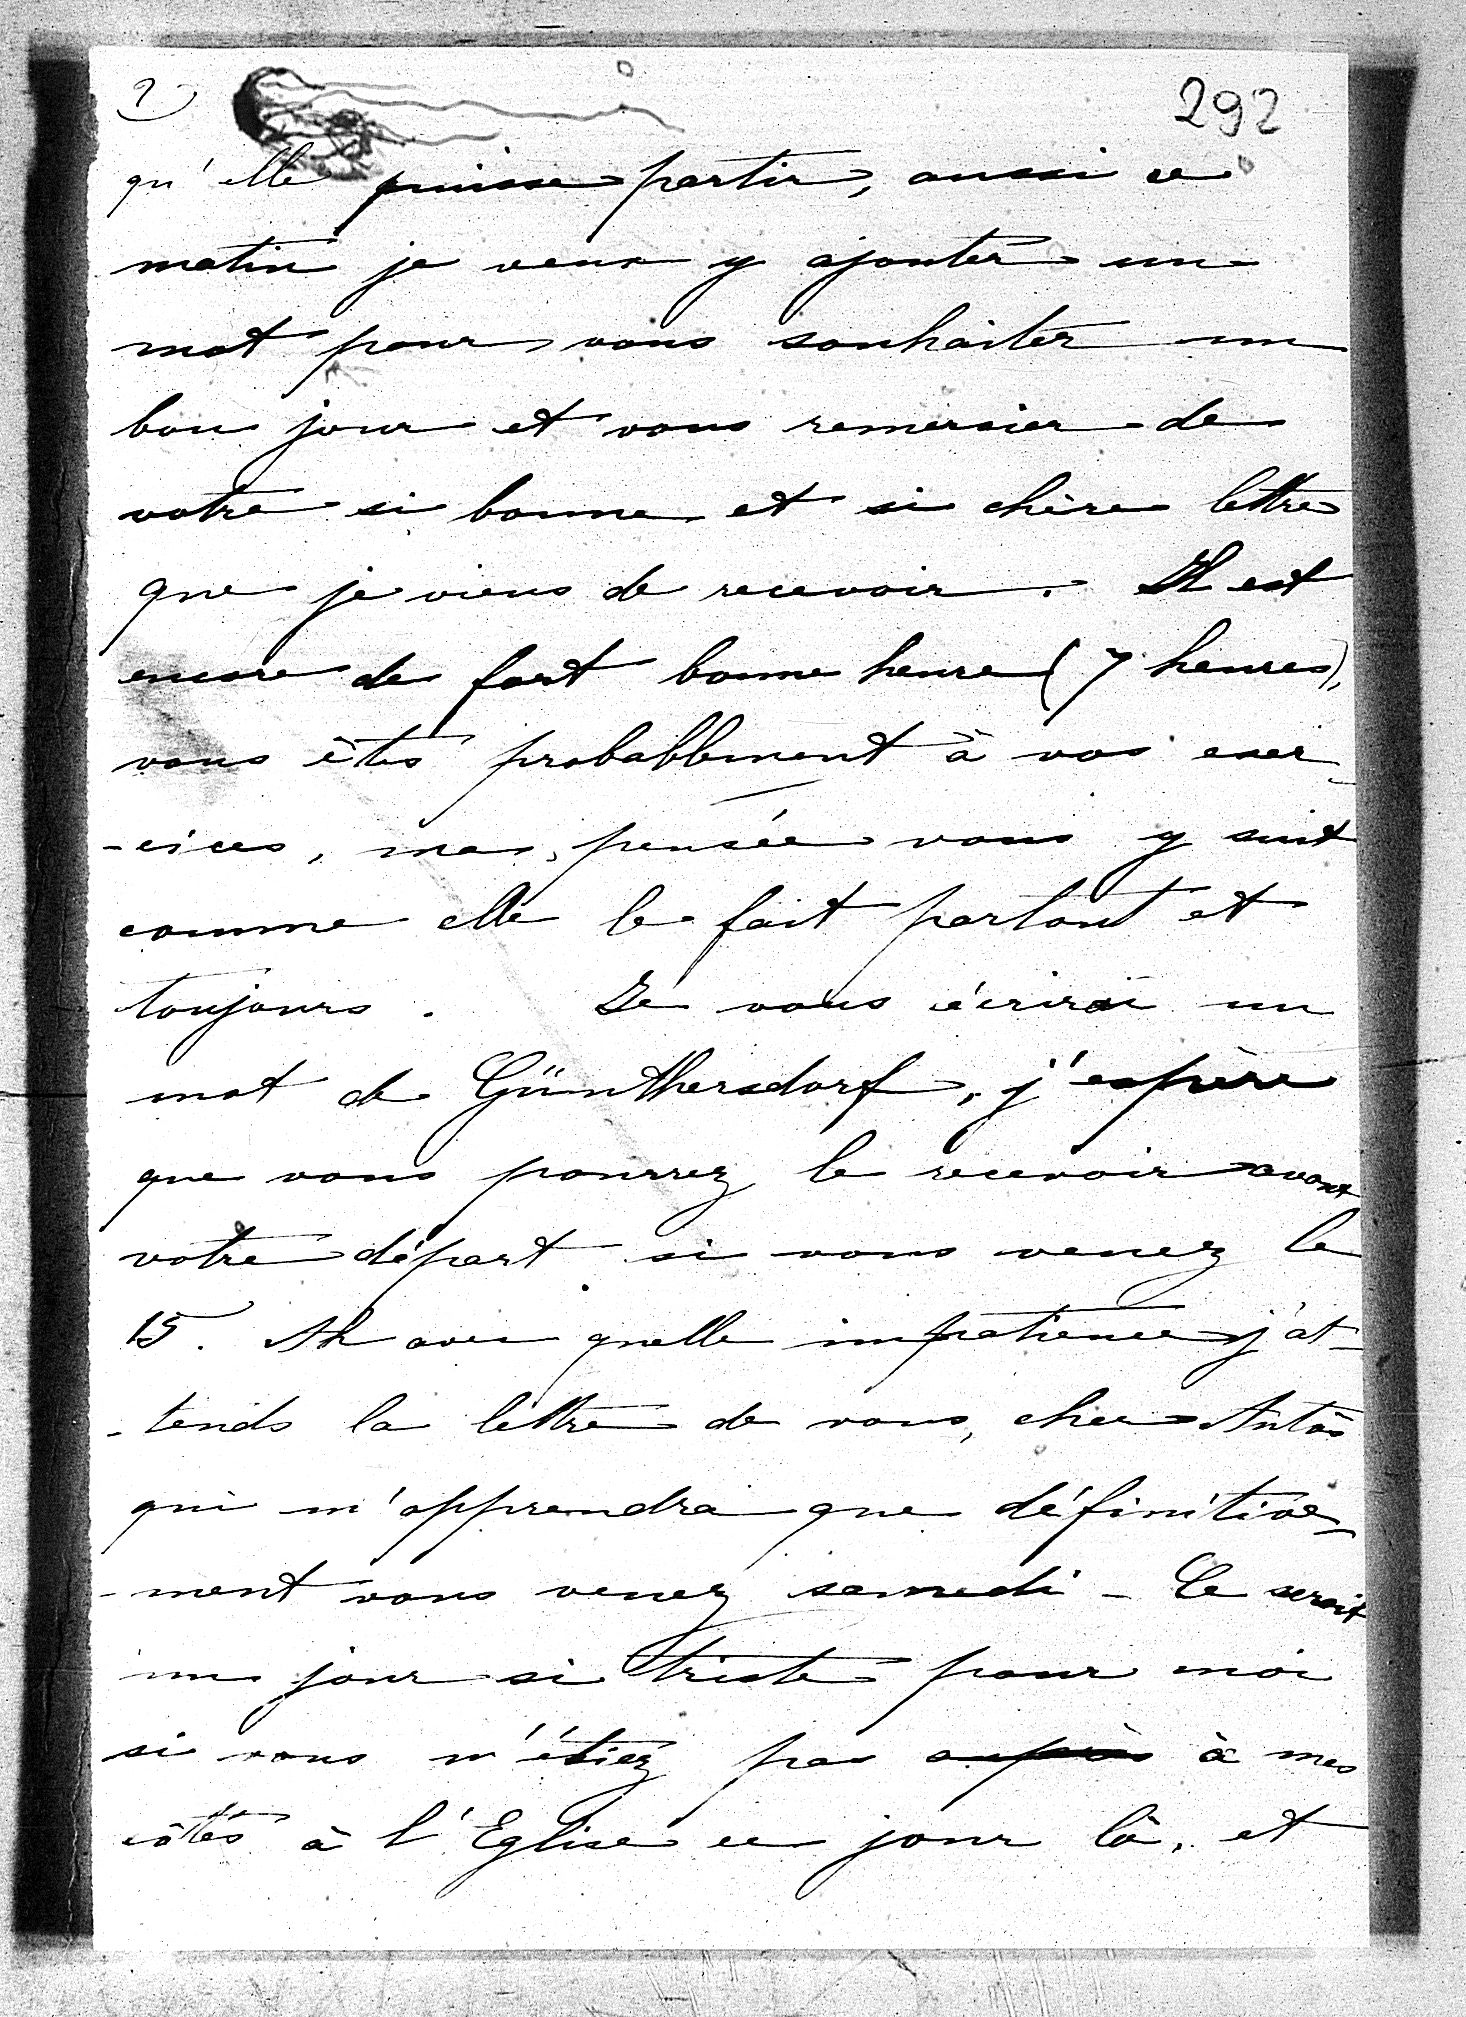 2)
292
qu'elle puisse partir, aussi ce
matin je veux y ajouter un
mot pour vous souhaiter un
bon jour et vous remercier de
votre si bonne et si chère lettre
que je viens de recevoir. Il est
encore de fort bonne heure (7 heures),
vous êtes probablement à vos exer-
-cices, ma pensée vous y suit
comme elle le fait partout et
toujours. Je vous écrirai un
mot de Günthersdorf, j'espère
que vous pourrez le recevoir avant
votre départ si vous venez le
15. Ah avec quelle impatience j'at-
-tends la lettre de vous, cher Antôs
qui m'apprendra que définitive-
-ment vous venez samedi - Ce serait
un jour si triste pour moi
si vous n'étiez pas auprès à mes
côtés à l'Eglise ce jour là, et